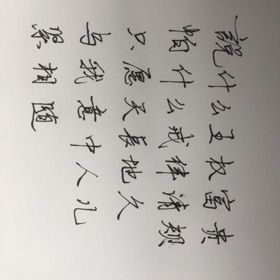 說什么王权富贵
怕什么戒律清规
只愿天長地久
与我意中人儿
紧相随